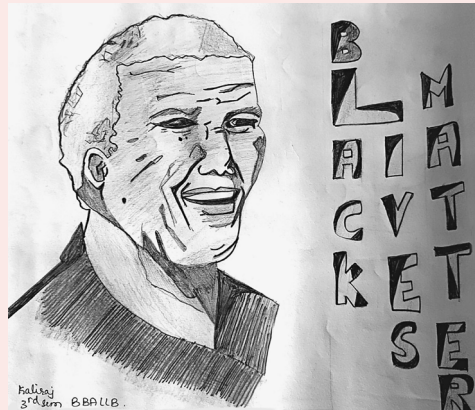 BLACK
LIVES
MATTER
Kaliraj
3rd sem BBALLB.